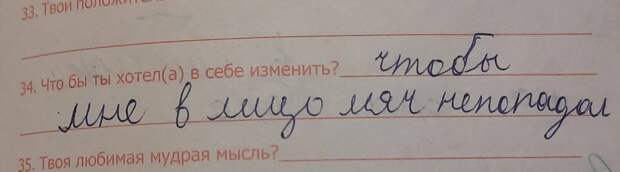 33. Твои положител
34. Что бы ты хотел(а) в себе изменить? чтобы
мне в лицо мяч непопадал
35. Твоя любимая мудрая мысль?